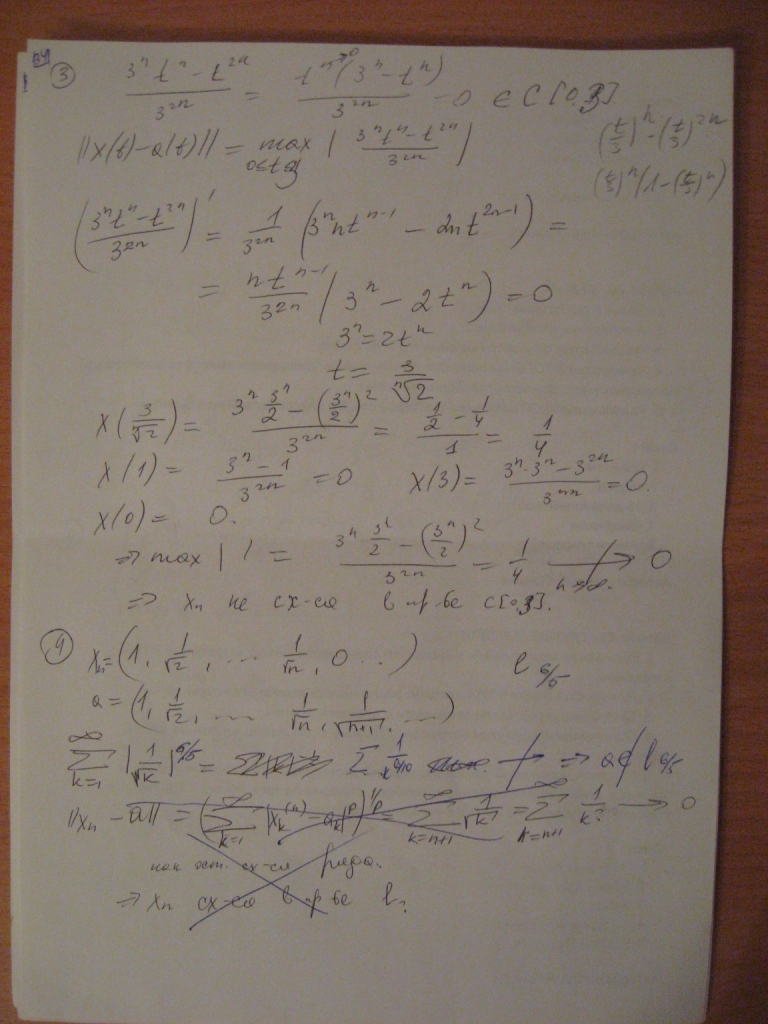 ③ (3ⁿtⁿ - t²ⁿ)/3²ⁿ = tⁿ(3ⁿ - tⁿ)/3²ⁿ → 0 ∈ C[0,3]
||x(t) - a(t)|| = max 0≤t≤3 |(3ⁿtⁿ - t²ⁿ)/3²ⁿ|
(t/3)ⁿ - (t/3)²ⁿ
(t/3)ⁿ(1 - (t/3)ⁿ)
((3ⁿtⁿ - t²ⁿ)/3²ⁿ)' = 1/3²ⁿ (3ⁿntⁿ⁻¹ - 2nt²ⁿ⁻¹) =
= ntⁿ⁻¹/3²ⁿ (3ⁿ - 2tⁿ) = 0
3ⁿ = 2tⁿ
t = 3/ⁿ√2
x(3/ⁿ√2) = (3ⁿ 3ⁿ/2 - (3ⁿ/2)²)/3²ⁿ = (1/2 - 1/4)/1 = 1/4
x(1) = (3ⁿ - 1)/3²ⁿ = 0 x(3) = (3ⁿ·3ⁿ - 3²ⁿ)/3²ⁿ = 0.
x(0) = 0.
⇒ max | | = (3ⁿ 3ⁿ/2 - (3ⁿ/2)²)/3²ⁿ = 1/4 ↛ 0 n→∞.
⇒ xn не сх-ся в пр-ве C[0,3].
④ xn = (1, 1/√2, ... 1/√n, 0 ...) l 6/5
a = (1, 1/√2, ... 1/√n, 1/√(n+1), ...)
∑ k=1 ∞ |1/√k|^6/5 = ∑ 1/k^6/10 ⇒ a ∉ l 6/5
||xn - a|| = (∑ k=1 ∞ |xk⁽ⁿ⁾ - ak|ᵖ)^1/p = ∑ k=n+1 ∞ 1/√k = ∑ k=n+1 ∞ 1/k? → 0
как ост. сх-ся ряда.
⇒ xn сх-ся в пр-ве l?